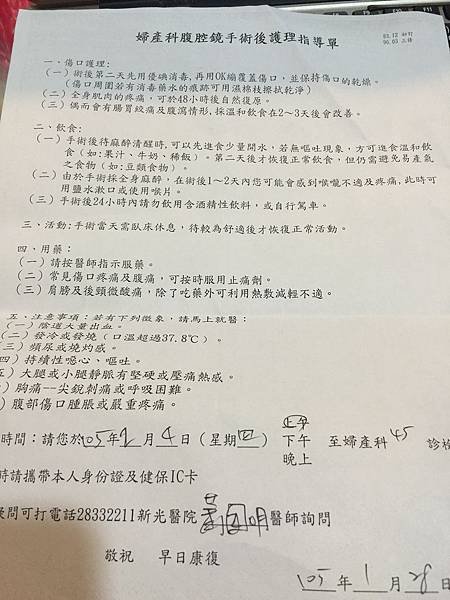 婦產科腹腔鏡手術後護理指導單
83.12 初訂
96.03 三修
一、傷口護理:
(一)術後第二天先用優碘消毒,再用OK繃覆蓋傷口,並保持傷口的乾燥。
(傷口周圍若有消毒藥水的痕跡可用濕棉枝擦拭乾淨)
(二)全身肌肉的疼痛,可於48小時後自然復原。
(三)偶而會有腸胃絞痛及腹瀉情形,採溫和飲食在2~3天後會改善。
二、飲食:
(一)手術後待麻醉清醒時,可以先進食少量開水,若無嘔吐現象,方可進食溫和飲
食(如:果汁、牛奶、稀飯)。第二天後才恢復正常飲食,但仍需避免易產氣
之食物(如:豆類食物)。
(二)由於手術採全身麻醉,在術後1~2天內您可能會感到喉嚨不適及疼痛,此時可
用鹽水漱口或使用喉片。
(三)手術後24小時內請勿飲用含酒精性飲料,或自行駕車。
三、活動:手術當天需臥床休息,待較為舒適後才恢復正常活動。
四、用藥:
(一)請按醫師指示服藥。
(二)常見傷口疼痛及腹痛,可按時服用止痛劑。
(三)肩膀及後頸微酸痛,除了吃藥外可利用熱敷減輕不適。
五、注意事項:若有下列徵象,請馬上就醫:
(一)陰道大量出血。
(二)發冷或發燒(口溫超過37.8℃)。
(三)頻尿或燒灼感。
四)持續性噁心、嘔吐。
五)大腿或小腿靜脈有堅硬或壓痛熱感。
)胸痛--尖銳刺痛或呼吸困難。
)腹部傷口腫脹或嚴重疼痛。
時間:請您於105年2月4日(星期四)
上午
下午
晚上
至婦產科45診
時請攜帶本人身份證及健保IC卡
問可打電話28332211新光醫院黃國明醫師詢問
敬祝 早日康復
105年1月28日